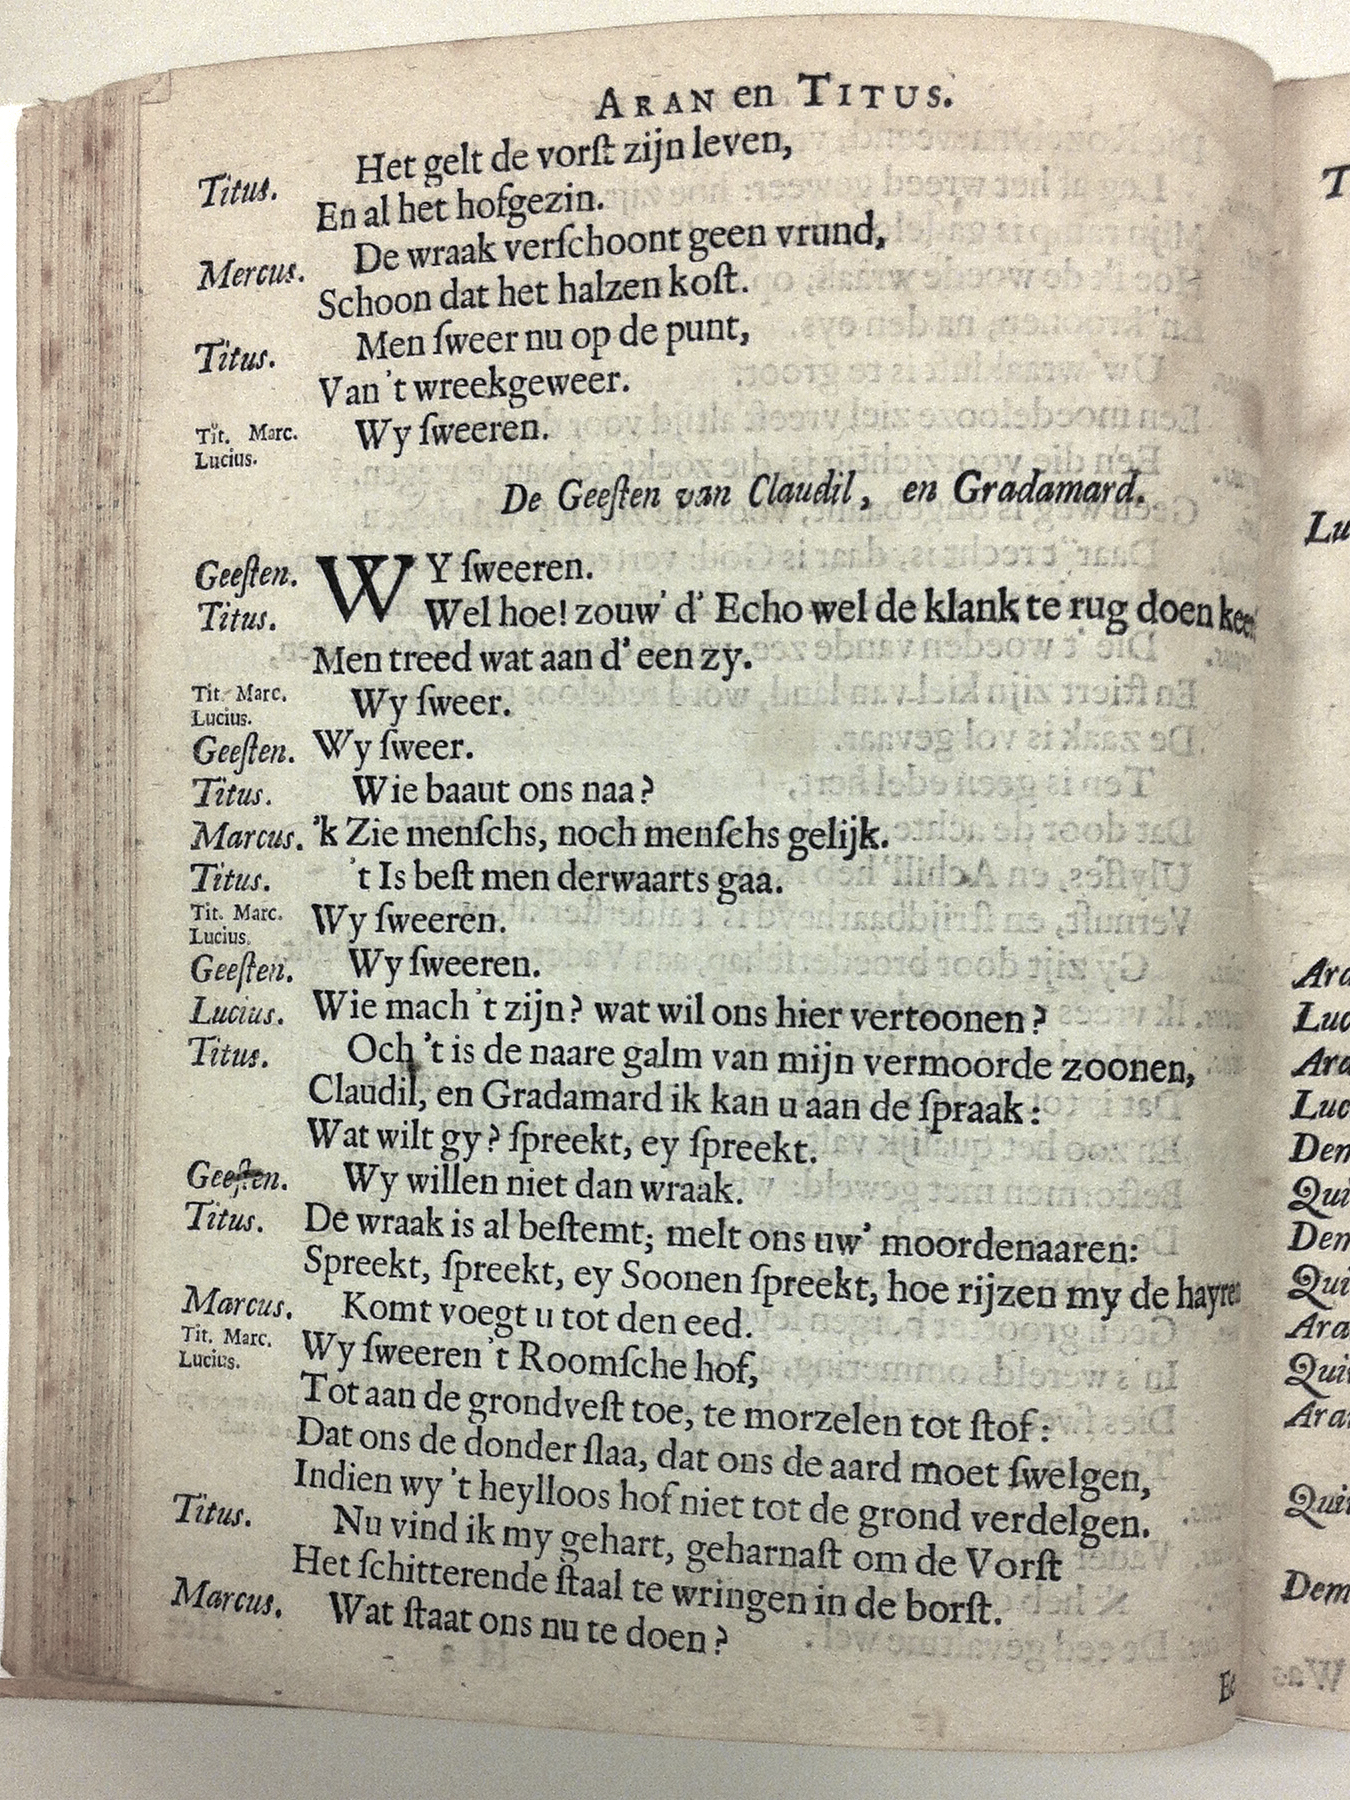 ARAN en TITUS.
Het gelt de vorſt zijn leven,
Titus. En al het hofgezin.
De wraak verſchoont geen vrund,
Mercus. Schoon dat het halzen koſt.
Men ſweer nu op de punt,
Titus. Van 't wreekgeweer.
Tit. Marc. Wy ſweeren.
Lucius.
De Geeſten van Claudil, en Gradamard.
Geeſten. WY ſweeren.
Titus. Wel hoe! zouw' d' Echo wel de klank te rug doen
Men treed wat aan d' een zy.
Tit. Marc. Wy ſweer.
Lucius.
Geeſten. Wy ſweer.
Titus. Wie baaut ons naa?
Marcus. 'k Zie menſchs, noch menſchs gelijk.
Titus. 't Is beſt men derwaarts gaa.
Tit. Marc. Wy ſweeren.
Lucius.
Geeſten. Wy ſweeren.
Lucius. Wie mach 't zijn? wat wil ons hier vertoonen?
Titus. Och 't is de naare galm van mijn vermoorde zoonen,
Claudil, en Gradamard ik kan u aan de ſpraak:
Wat wilt gy? ſpreekt, ey ſpreekt.
Geeſten. Wy willen niet dan wraak.
Titus. De wraak is al beſtemt; melt ons uw' moordenaaren:
Spreekt, ſpreekt, ey Soonen ſpreekt, hoe rijzen my de hayren
Marcus. Komt voegt u tot den eed.
Tit. Marc. Wy ſweeren 't Roomſche hof,
Lucius.
Tot aan de grondveſt toe, te morzelen tot ſtof:
Dat ons de donder ſlaa, dat ons de aard moet ſwelgen,
Indien wy 't heylloos hof niet tot de grond verdelgen.
Titus. Nu vind ik my gehart, geharnaſt om de Vorſt
Het ſchitterende ſtaal te wringen in de borſt.
Marcus. Wat ſtaat ons nu te doen?
Lu
Ara
Luc
Ara
Luc
Dem
Qui
Dem
Qui
Ara
Qui
Ara
Qui
Dem